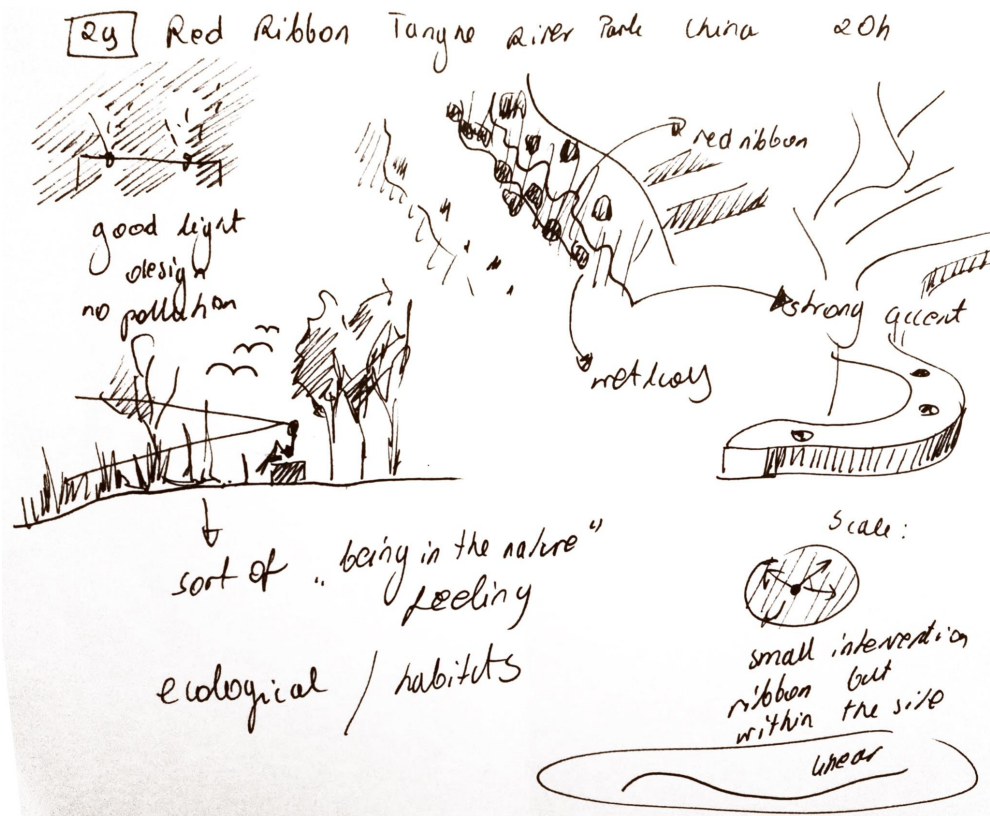 29 Red Ribbon Tanghe River Park China 20h
good light
design
no pollution
red ribbon
strong accent
sort of "being in the nature"
feeling
ecological / habitats
Scale:
small intervention
ribbon but
within the site
linear